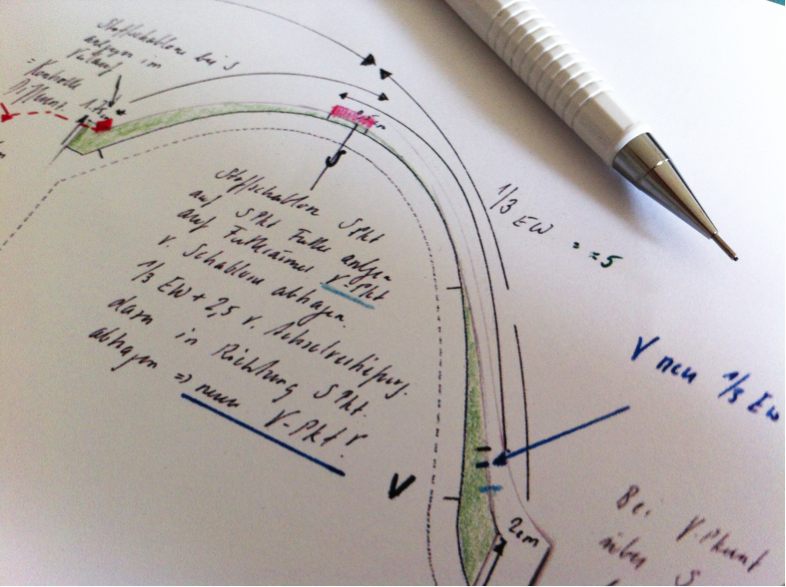 Stoffschablone bei S
anlegen im
Verlauf
= Kontrolle
1,75
Stoffschablone SPkt
auf SPkt Futter anlegen
auf Futterärmel V-Pkt
v. Schablone abtragen.
1/3 EW + 2,5 v.
dann in Richtung SPkt.
abtragen => neuer V-Pkt!
S
1/3 EW = =5
V neu 1/3 EW
V
2cm
Bei V-Punkt
über S